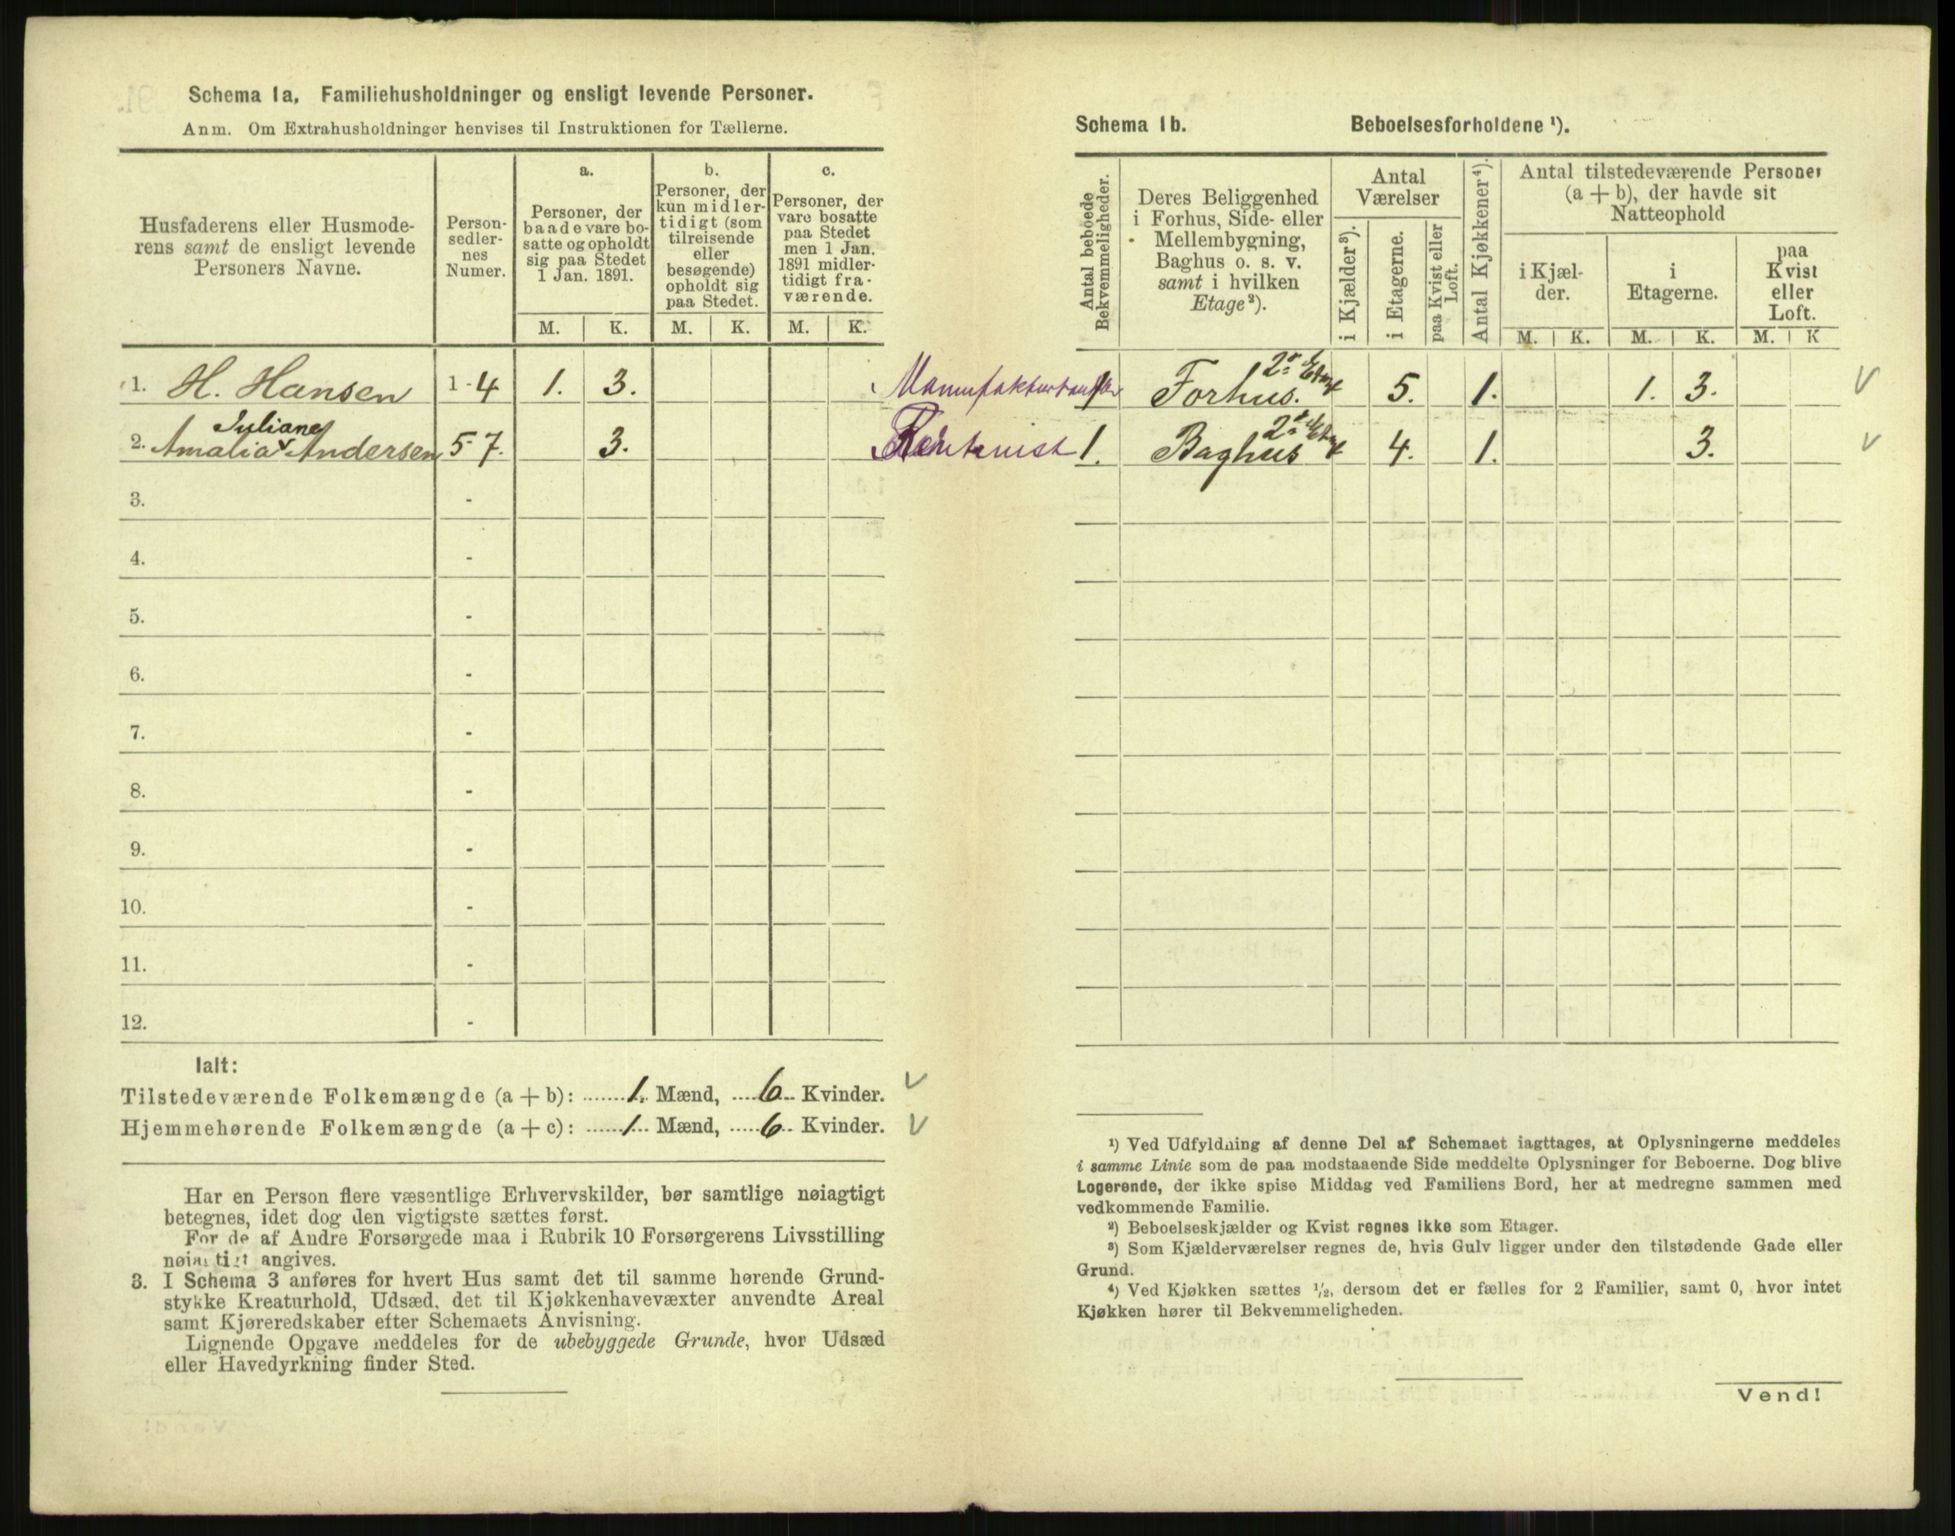 Schema 1a. Familiehusholdninger og ensligt levende Personer.
Anm. Om Extrahusholdninger henvises til Instruktionen for Tællerne.
Husfaderens eller Husmoderens samt de ensligt levende Personers Navne.
Person-sedler-nes Numer.
a.
Personer, der baade vare bosatte og opholdt sig paa Stedet 1 Jan. 1891.
b.
Personer, der kun midlertidigt (som tilreisende eller besøgende) opholdt sig paa Stedet.
c.
Personer, der vare bosatte paa Stedet men 1 Jan. 1891 midlertidigt fraværende.
M. K. M. K. M. K.
1. H. Hansen 1-4 1. 3.
Juliane
2. Amalia v Andersen 5-7. 3.
3. -
4. -
5. -
6. -
7. -
8. -
9. -
10. -
11. -
12. -
Ialt:
Tilstedeværende Folkemængde (a + b): 1. Mænd, 6 Kvinder. v
Hjemmehørende Folkemængde (a + c): 1 Mænd, 6 Kvinder. v
Har en Person flere væsentlige Erhvervskilder, bør samtlige nøiagtigt
betegnes, idet dog den vigtigste sættes først.
For de af Andre Forsørgede maa i Rubrik 10 Forsørgerens Livsstilling
nøiagtigt angives.
3. I Schema 3 anføres for hvert Hus samt det til samme hørende Grund-
stykke Kreaturhold, Udsæd, det til Kjøkkenhavevæxter anvendte Areal
samt Kjøreredskaber efter Schemaets Anvisning.
Lignende Opgave meddeles for de ubebyggede Grunde, hvor Udsæd
eller Havedyrkning finder Sted.
Schema 1b. Beboelsesforholdene ¹).
Antal beboede Bekvemmeligheder.
Deres Beliggenhed i Forhus, Side- eller Mellembygning, Baghus o. s. v. samt i hvilken Etage²).
Antal Værelser
i Kjælder³).
i Etagerne.
paa Kvist eller Loft.
Antal Kjøkkener⁴).
Antal tilstedeværende Personer (a + b), der havde sit Natteophold
i Kjælder.
i Etagerne.
paa Kvist eller Loft.
M. K. M. K. M. K
Manufakturhandler 1 Forhus. 2den Etage 5. 1. 1. 3. v
Rentenist 1. Baghus 2den Etage 4. 1. 3. v
¹) Ved Udfyldning af denne Del af Schemaet iagttages, at Oplysningerne meddeles
i samme Linie som de paa modstaaende Side meddelte Oplysninger for Beboerne. Dog blive
Logerende, der ikke spise Middag ved Familiens Bord, her at medregne sammen med
vedkommende Familie.
²) Beboelseskjælder og Kvist regnes ikke som Etager.
³) Som Kjælderværelser regnes de, hvis Gulv ligger under den tilstødende Gade eller
Grund.
⁴) Ved Kjøkken sættes 1/2, dersom det er fælles for 2 Familier, samt 0, hvor intet
Kjøkken hører til Bekvemmeligheden.
Vend!